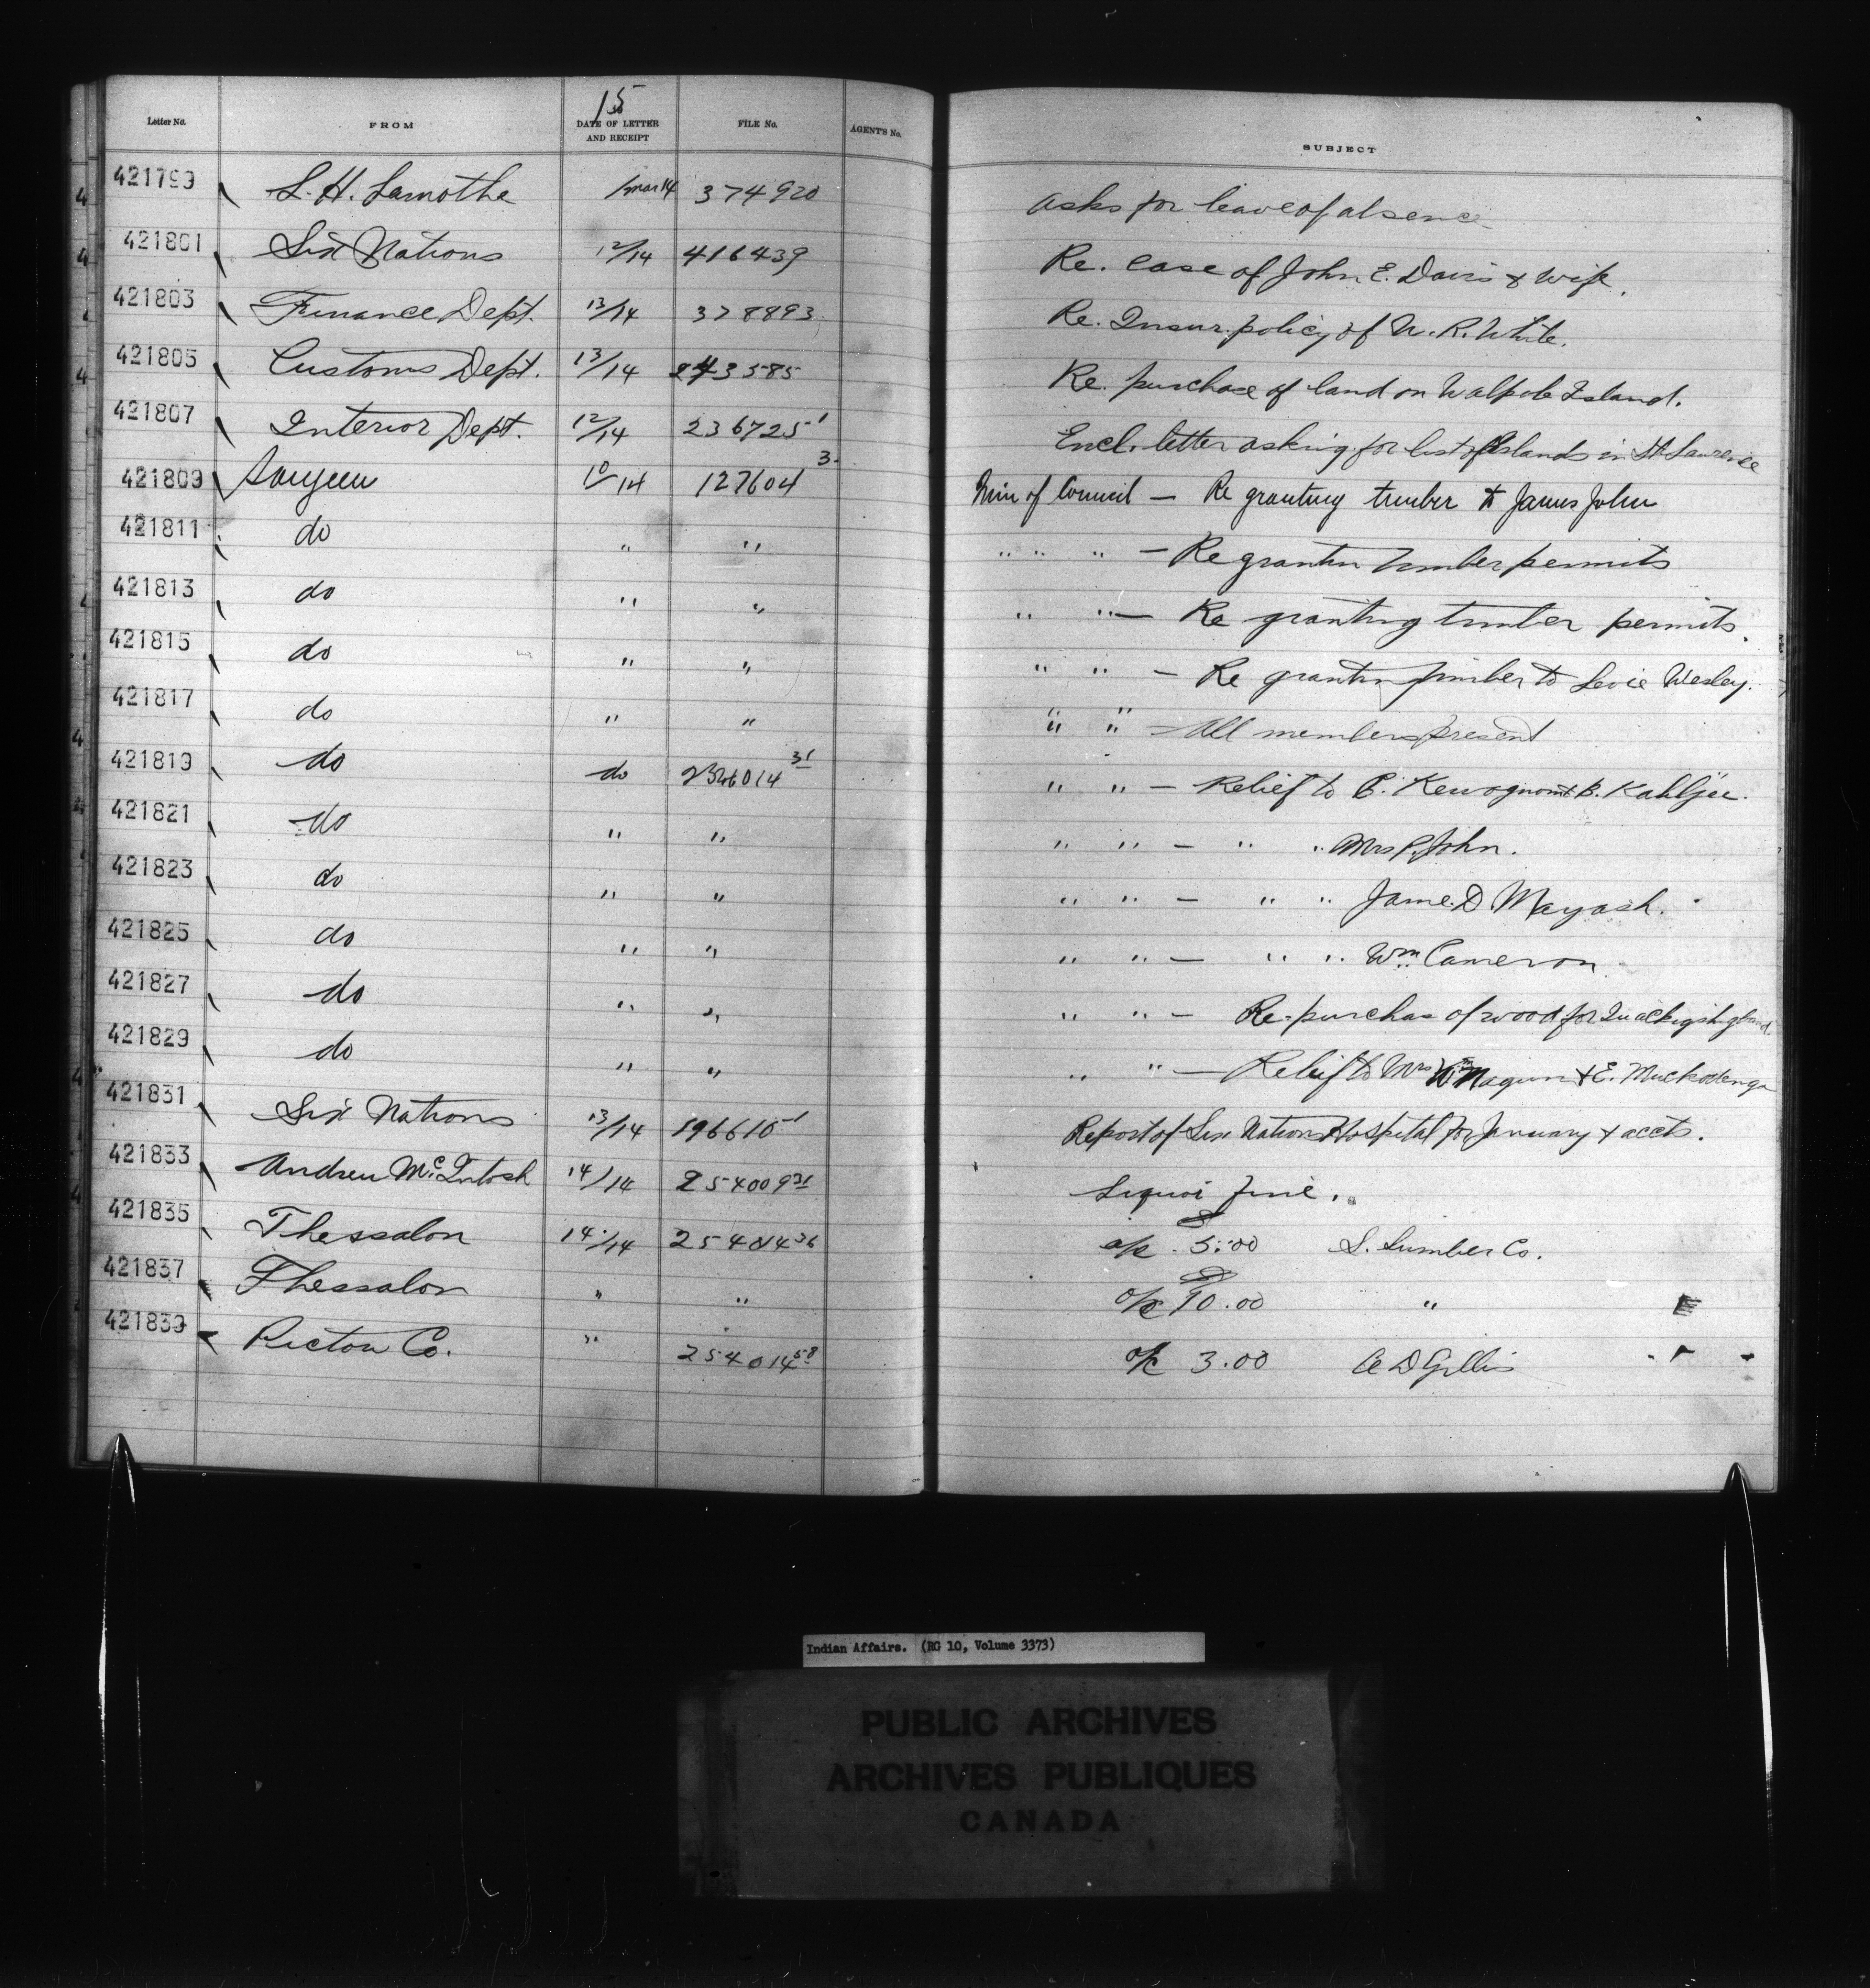 15
Letter No. FROM DATE OF LETTER AND RECEIPT FILE No. AGENT'S No. SUBJECT
421799 L. H. Lamothe 1 mar 14 374920 asks for leave of absence
421801 Six Nations 12/14 416439 Re. case of John E. Davis & wife.
421803 Finance Dept. 13/14 378893 Re. Insur. policy of W. R. White.
421805 Customs Dept. 13/14 243585 Re. purchase of land on Walpole Island.
421807 Interior Dept. 12/14 236725-1 Encl. letter asking for list of Islands in St. Lawrence
421809 Saugeen 10/14 127604 3. Min of Council — Re granting timber to James John
421811 do " " " " " — Re grantin timber permits
421813 do " " " " — Re granting timber permits.
421815 do " " " " — Re grantin timber to Levie Wesley.
421817 do " " " " — All members present
421819 do do 31 " " — Relief to & B. Kahbjee.
421821 do " " " " — " " Mrs P. John.
421823 do " " " " — " " Jame. D. Mayash.
421825 do " " " " — " " Wm. Cameron
421827 do " " " " — Re-purchas of wood for
421829 do " " " " — Relief to Mrs Wm & E.
421831 Six Nations 13/14 196610-1 Report of Six Nations Hospital for January & accts.
421833 Andrew McIntosh 14/14 254009 31 Liquor fine.
421835 Thessalon 14/14 254014 36 o/c 5.00 S. Lumber Co.
421837 Thessalon " " o/c 10.00 "
421839 Pictou Co. " 254014 58 o/c 3.00 A D Gillis
Indian Affairs. (RG 10, Volume 3373)
PUBLIC ARCHIVES
ARCHIVES PUBLIQUES
CANADA